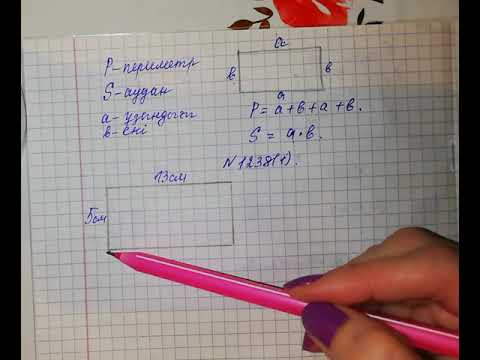 P-периметр
S-аудан
a-ұзындығы
в-ені
a
в
в
a
P=a+в+a+в.
S = a·в.
N1238(1).
13см
5см